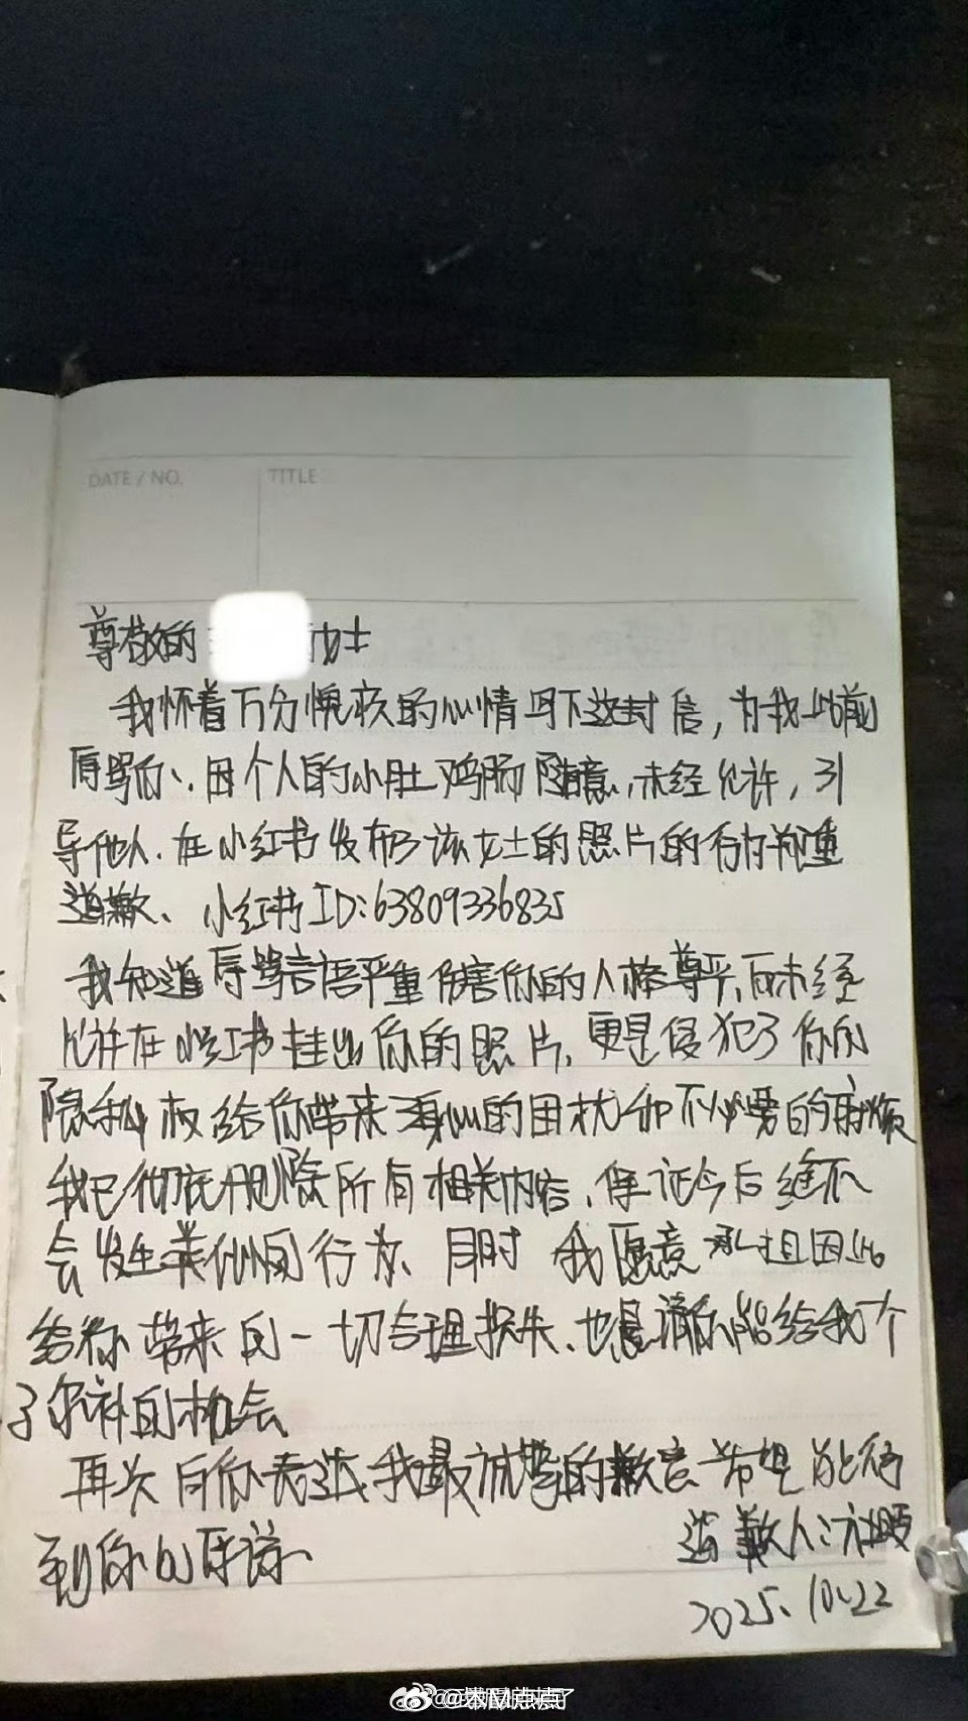 DATE / NO. TITLE
尊敬的 女士
我怀着万分愧疚的心情写下这封信，为我此前
辱骂你、因个人的小肚鸡肠 随意、未经允许，引
导他人、在小红书发布了该女士的照片的行为郑重
道歉、小红书ID:63809336835
我知道辱骂言语严重伤害你的人格尊严、而未经
允许在小红书挂出你的照片、更是侵犯了你的
隐私权给你带来身心的困扰和不必要的麻烦
我已彻底删除所有相关内容、保证今后绝不
会发生类似 行为、同时 我愿意承担因此
给你带来的一切合理损失、也恳请你能给我个
弥补的机会
再次向你表达我最诚挚的歉意 希望能得
到你的原谅、
道歉人:
2025.10.22